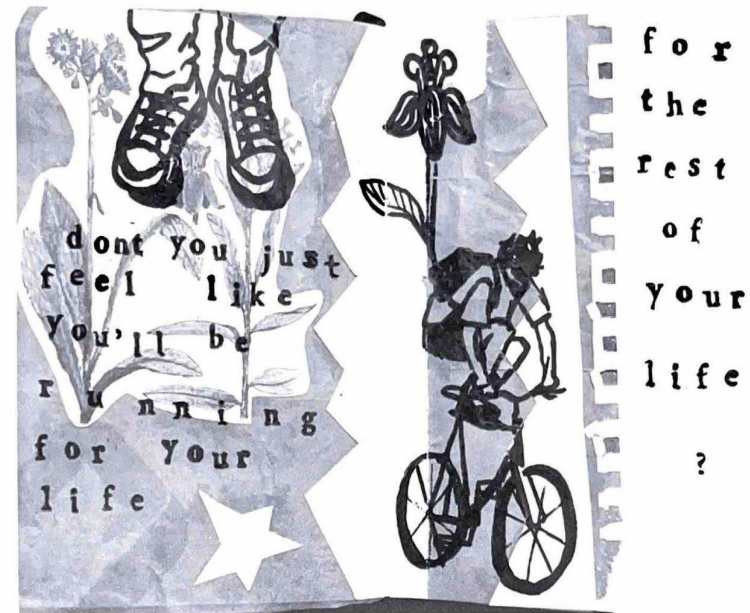 dont you just
feel like
you'll be
running
for your
life
for
the
rest
of
your
life
?